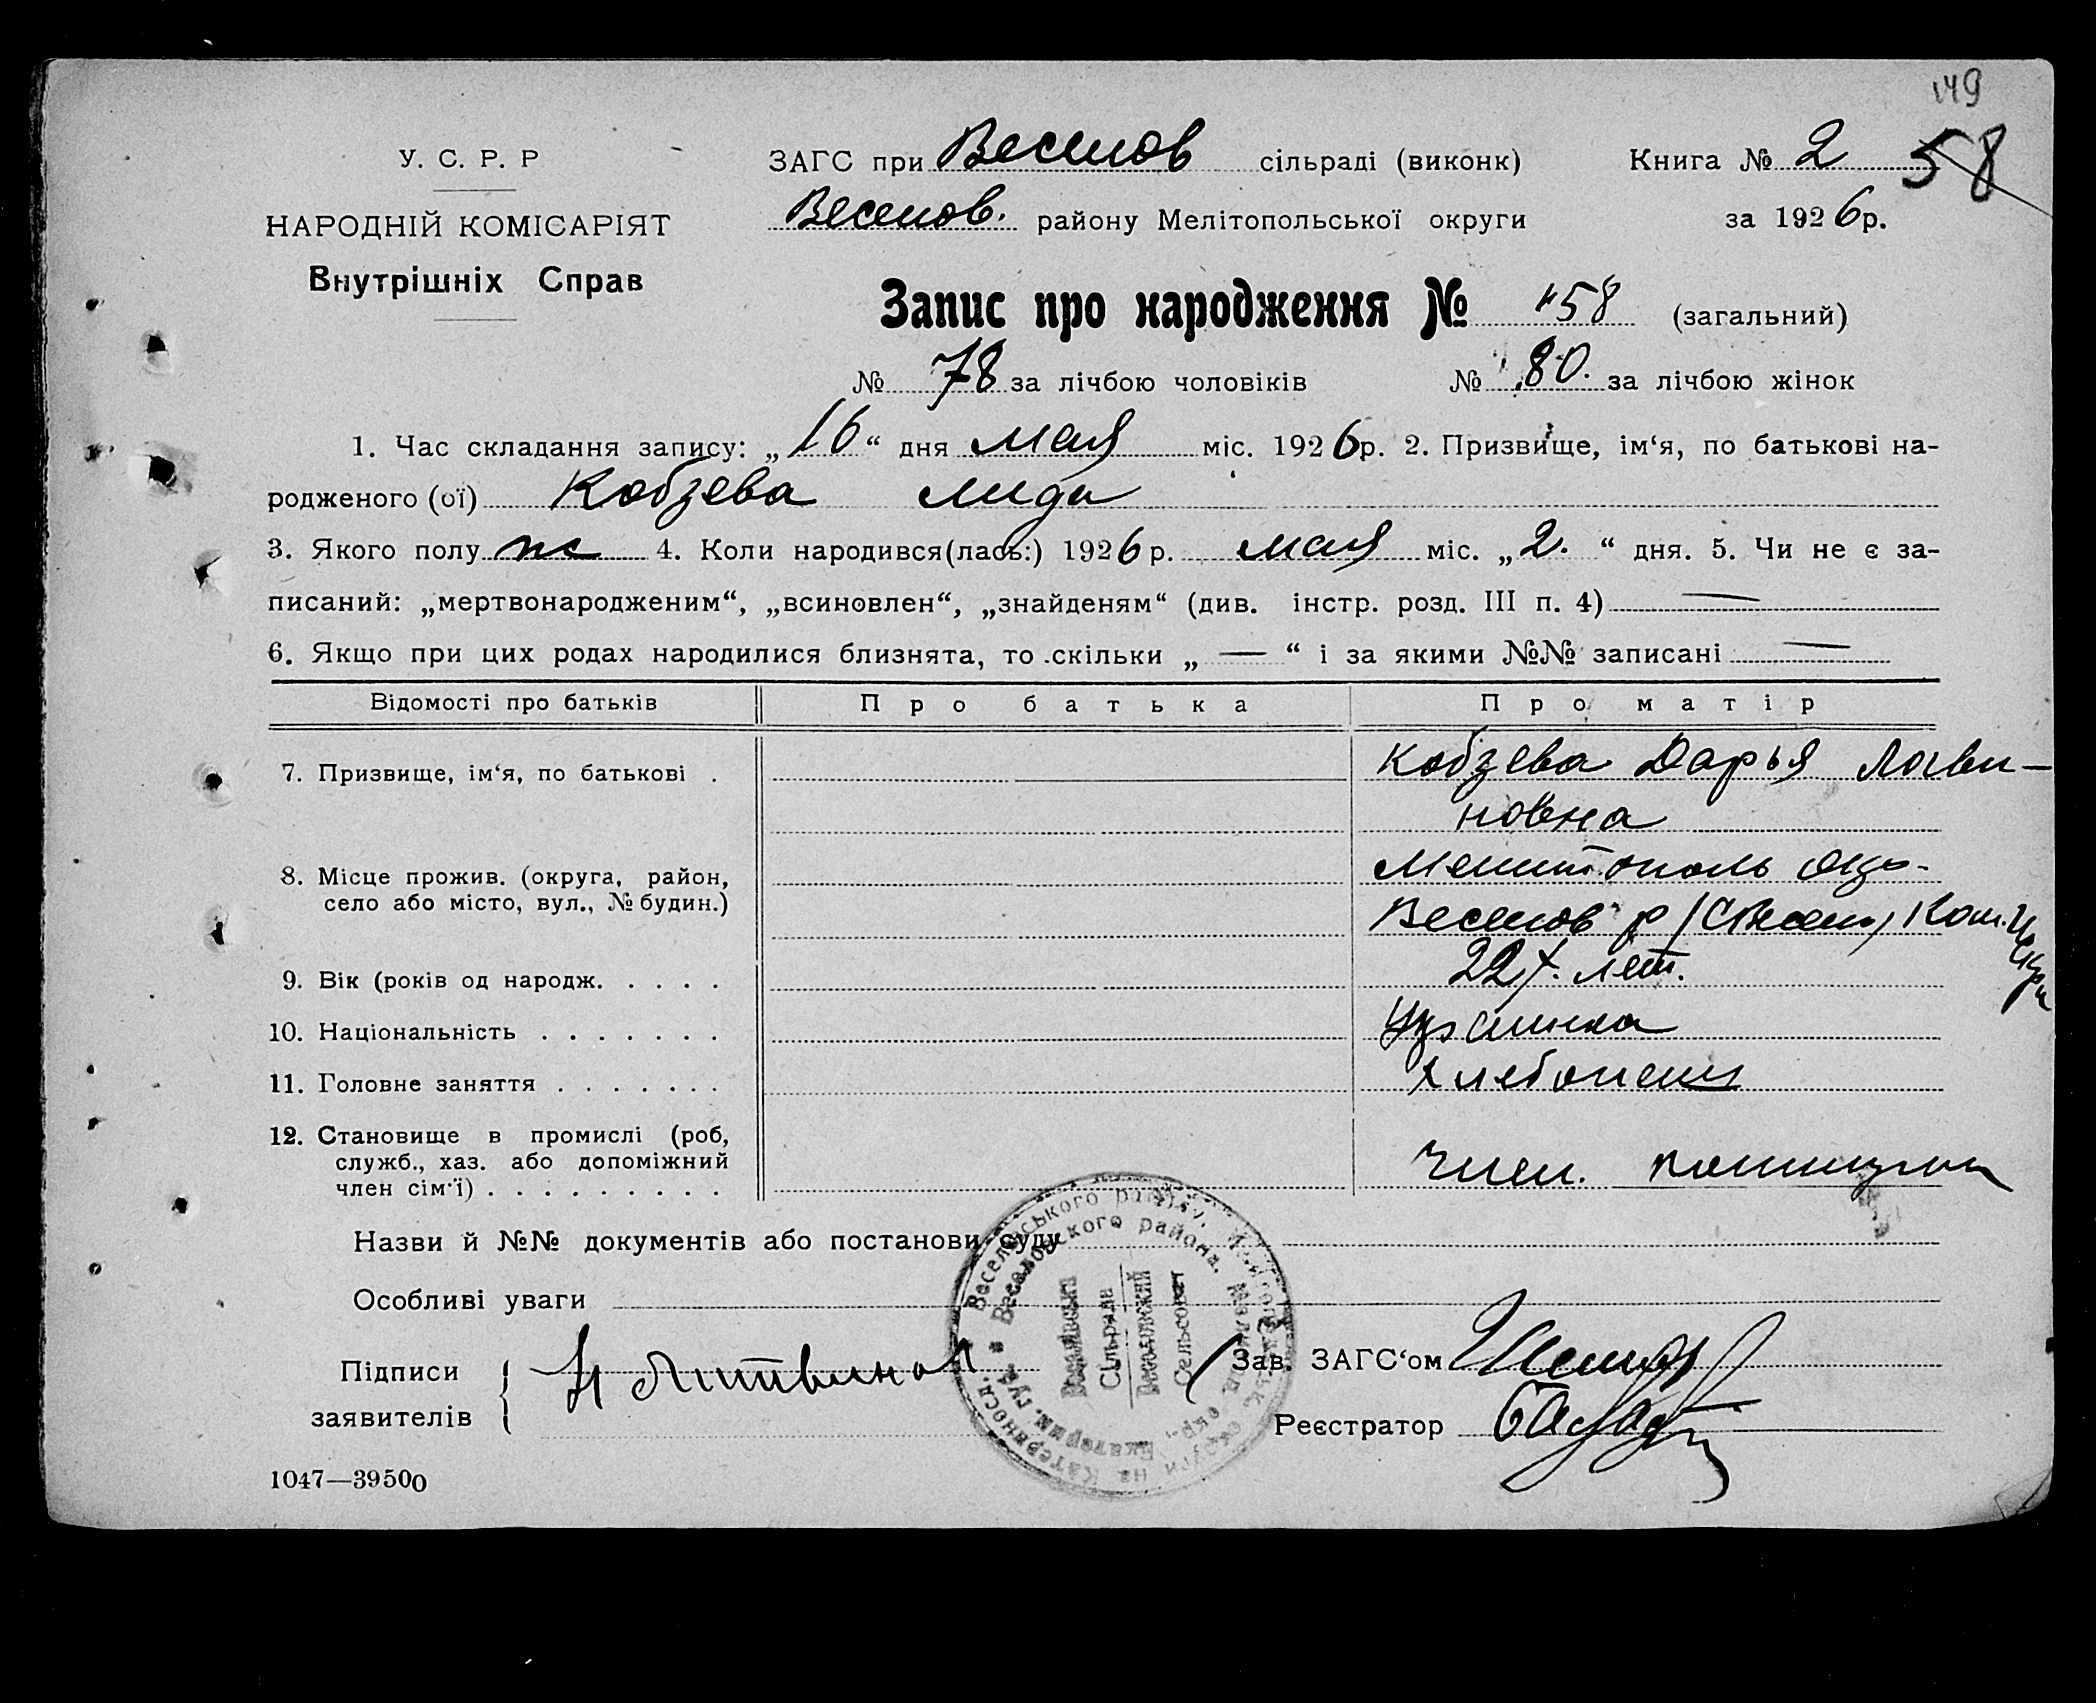 149
У. С. Р. Р
НАРОДНІЙ КОМІСАРІЯТ
Внутрішніх Справ
ЗАГС при Веселов сільраді (виконк) Книга № 2 58
Веселов. району Мелітопольської округи за 1926р.
Запис про народження № 158 (загальний)
№ 78 за лічбою чоловіків № 80. за лічбою жінок
1. Час складання запису: „16“ дня мая міс. 1926р. 2. Призвище, ім‘я, по батькові на-
родженого (ої) Кобзева Лида
3. Якого полу ж 4. Коли народився(лась:) 1926р. мая міс. „2.“ дня. 5. Чи не є за-
писаний: „мертвонародженим“, „всиновлен“, „знайденям“ (див. інстр. розд. III п. 4) —
6. Якщо при цих родах народилися близнята, то скільки „—“ і за якими №№ записані —
Відомості про батьків Про батька Про матір
7. Призвище, ім‘я, по батькові . Кобзева Дарья Логви-
новна
8. Місце прожив. (округа, район,
село або місто, вул., № будин.)
Мелитополь окр-
Веселов р
9. Вік (років од народж. . . . . 22 лет.
10. Національність . . . . . . . Украинка
11. Головне заняття . . . . . . . Хлебопаш
12. Становище в промислі (роб,
служб., хаз. або допоміжний
член сім‘ї) . . . . . . . . . член.
Назви й №№ документів або постанови суду
Особливі уваги
Підписи
заявителів
Литвинов
Зав. ЗАГС‘ом
Реєстратор
Веселівська
Сільрада
Веселовский
Сельсовет
1047—39500